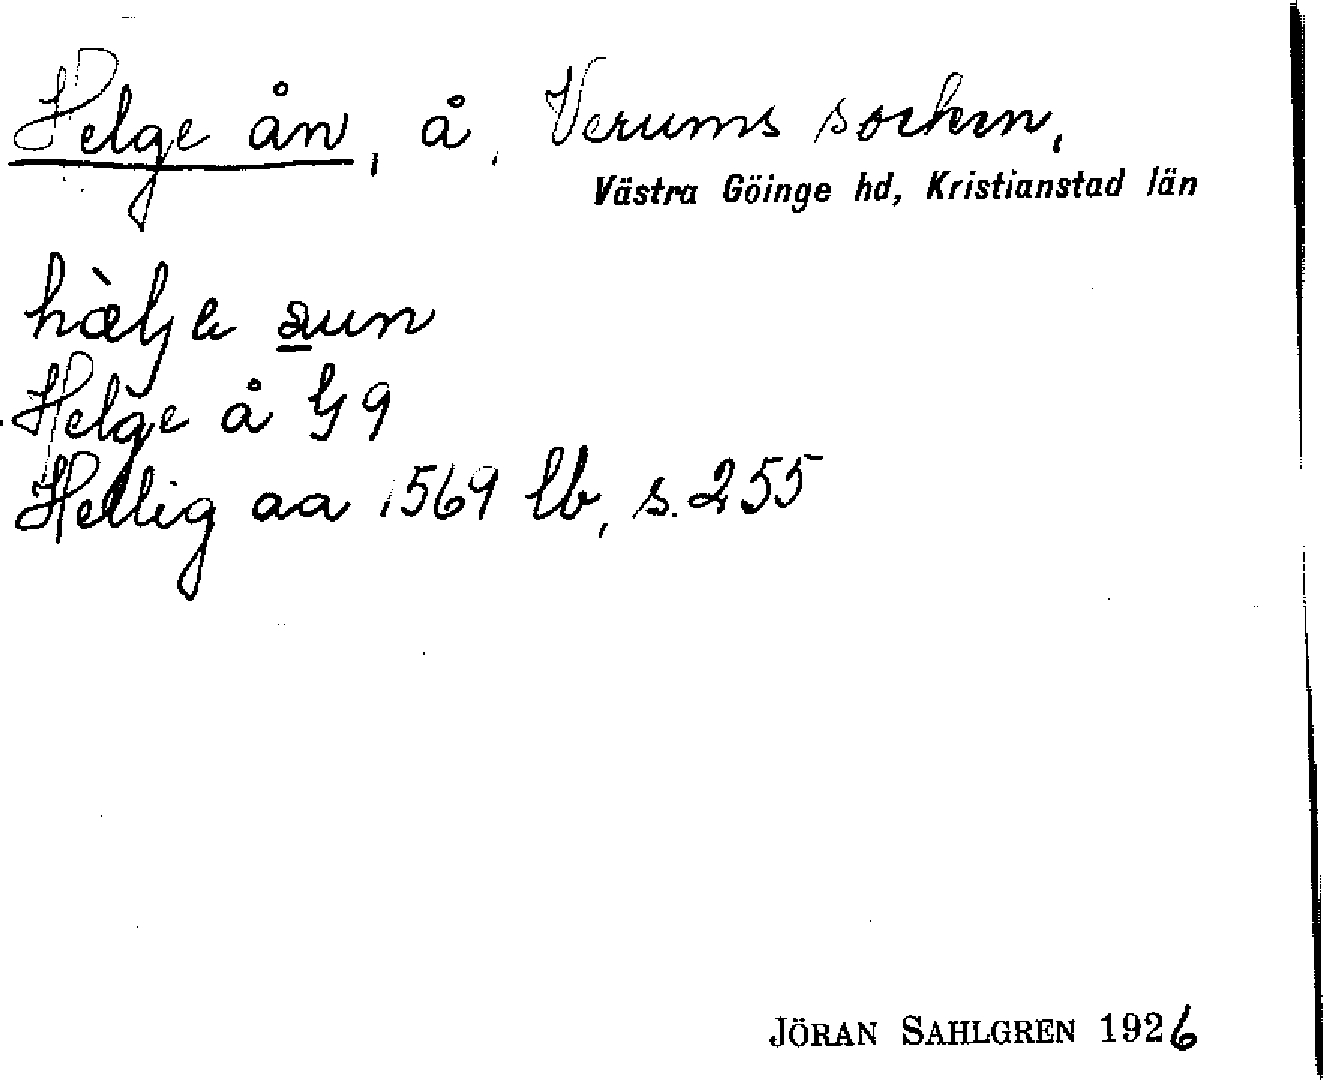 Helge ån, å, Verums socken,
Västra Göinge hd, Kristianstad län
hælje
Helge å G 9
Hellig aa 1569 lb, s. 255
JÖRAN SAHLGREN 1926